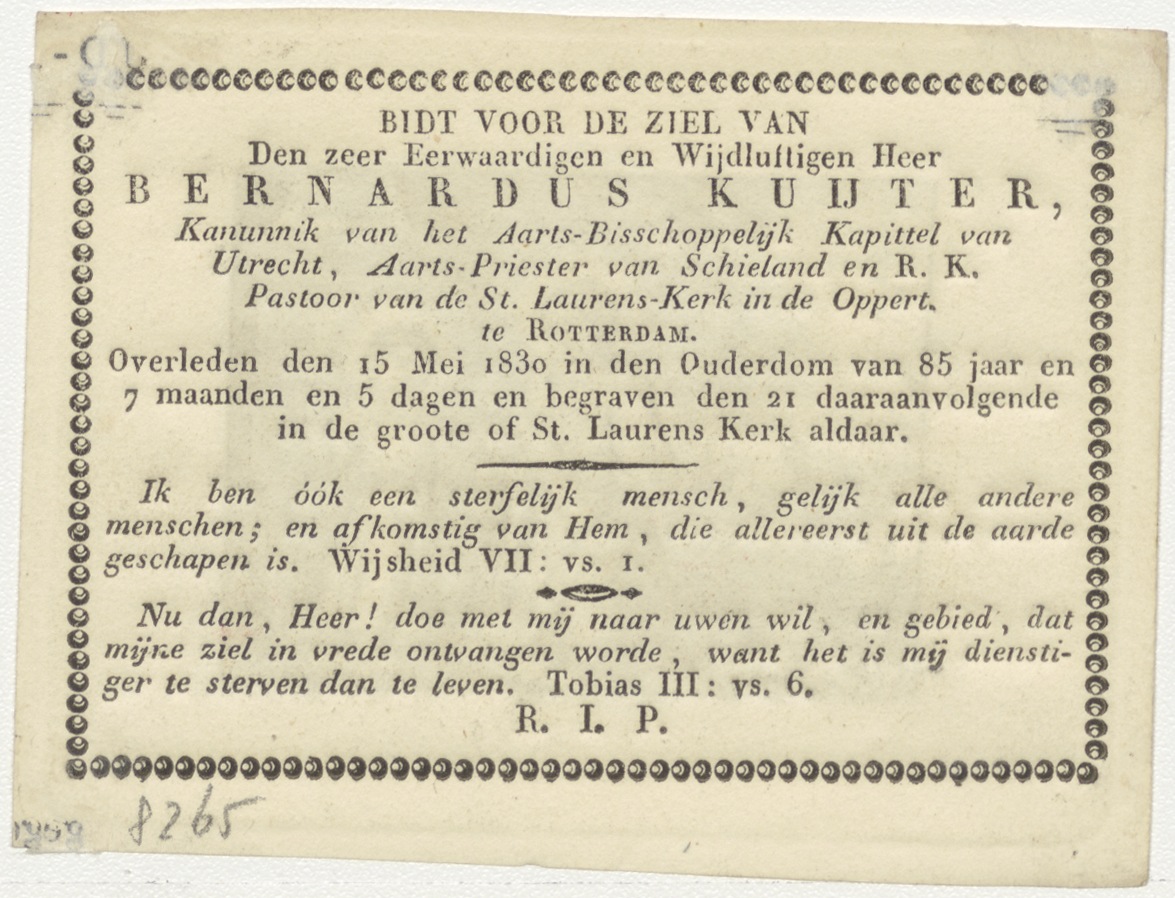 BIDT VOOR DE ZIEL VAN
Den zeer Eerwaardigen en Wijdluftigen Heer
BERNARDUS KUIJTER,
Kanunnik van het Aarts-Bisschoppelijk Kapittel van
Utrecht, Aarts-Priester van Schieland en R. K.
Pastoor van de St. Laurens-Kerk in de Oppert.
te ROTTERDAM.
Overleden den 15 Mei 1830 in den Ouderdom van 85 jaar en
7 maanden en 5 dagen en begraven den 21 daaraanvolgende
in de groote of St. Laurens Kerk aldaar.
Ik ben óók een sterfelijk mensch, gelijk alle andere
menschen; en afkomstig van Hem, die allereerst uit de aarde
geschapen is. Wijsheid VII: vs. 1.
Nu dan, Heer! doe met mij naar uwen wil, en gebied, dat
mijne ziel in vrede ontvangen worde, want het is mij diensti-
ger te sterven dan te leven. Tobias III: vs. 6.
R. I. P.
8265